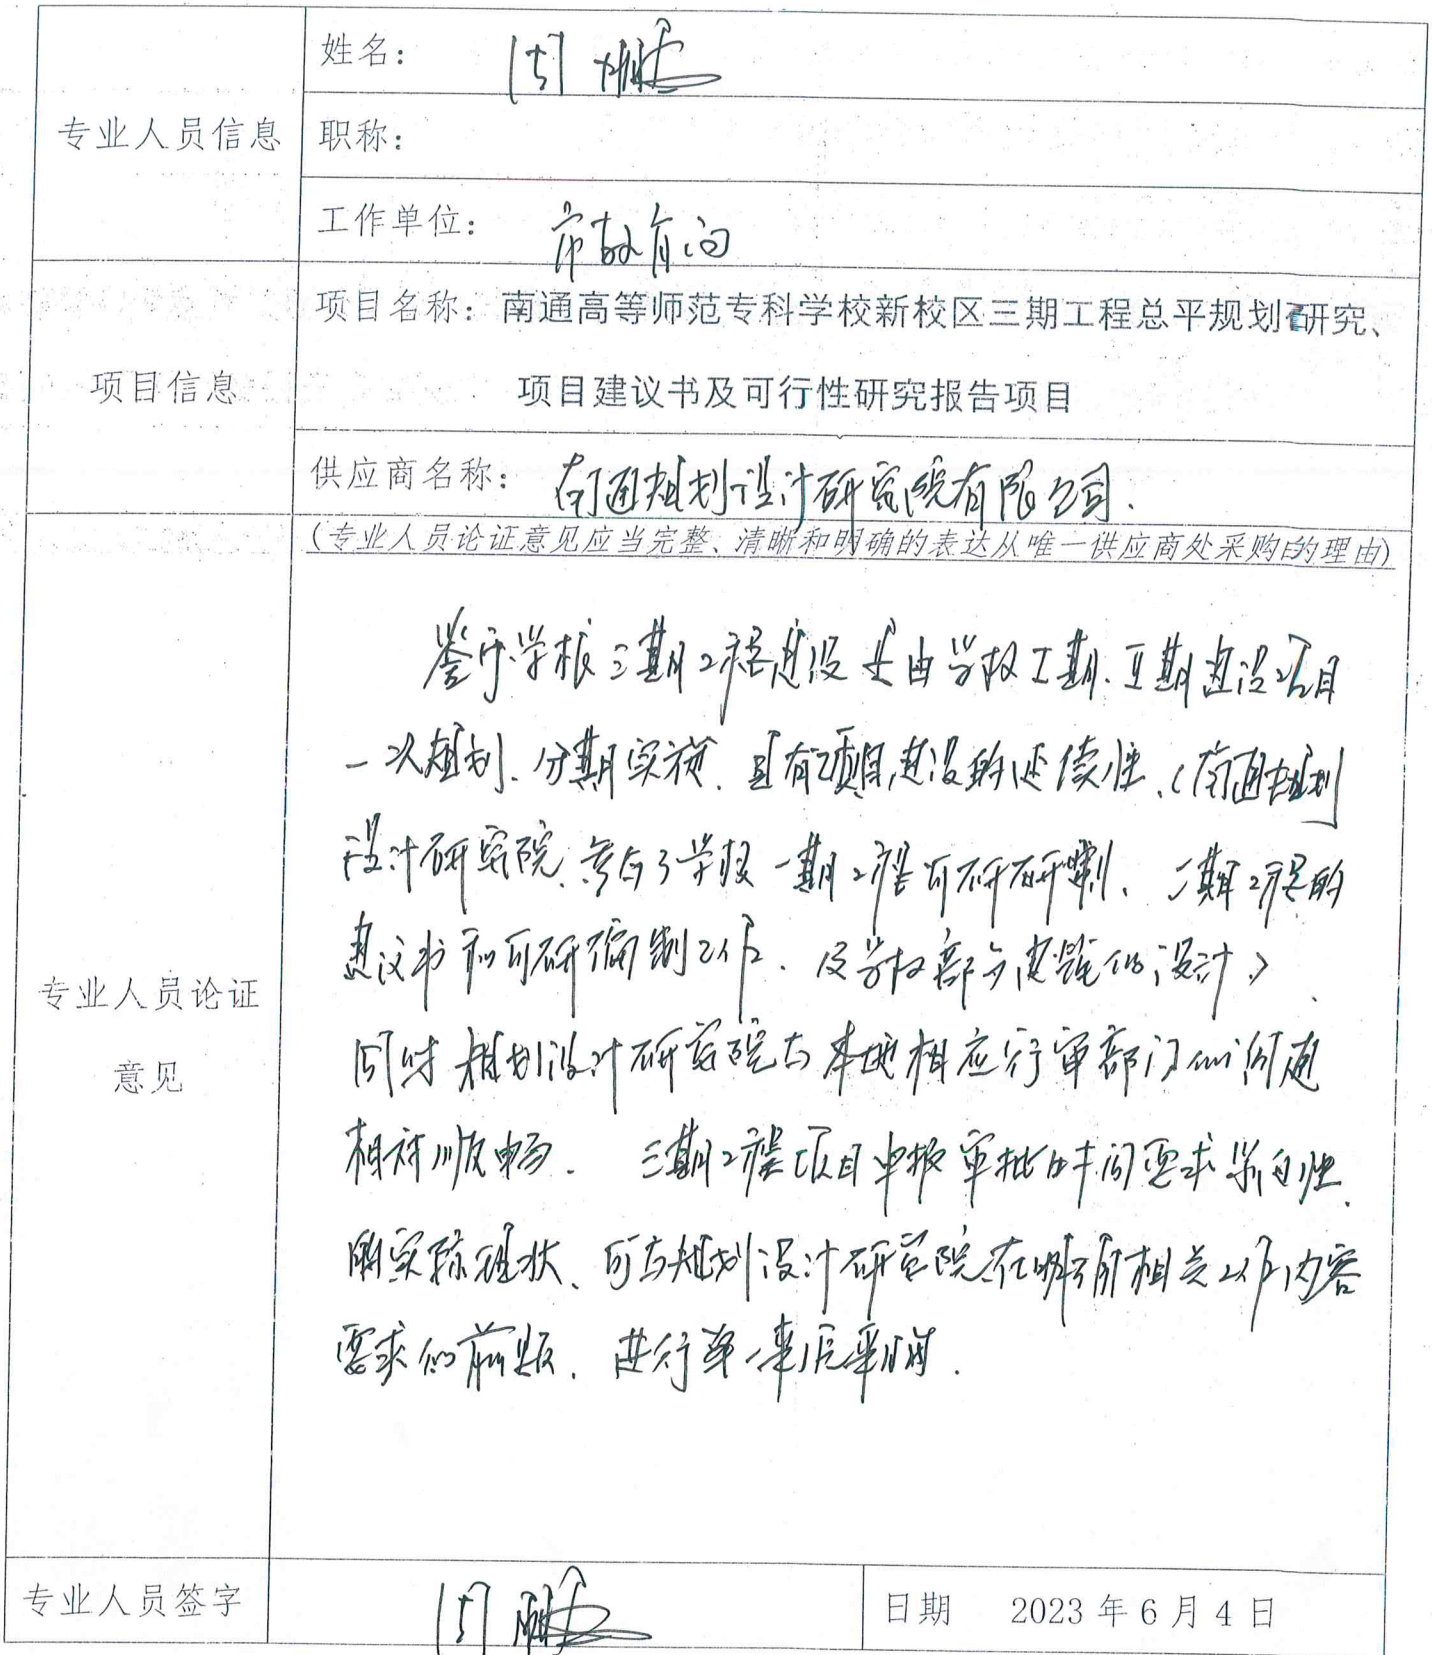 姓名：周
专业人员信息
职称：
工作单位：市教育局
项目名称：南通高等师范专科学校新校区三期工程总平规划研究、
项目信息
项目建议书及可行性研究报告项目
供应商名称：南通规划设计研究院有限公司.
(专业人员论证意见应当完整、清晰和明确的表达从唯一供应商处采购的理由)
鉴于学校三期工程建设是由学校I期、II期建设项目
一次规划、分期实施、且有项目建设的延续性、(南通规划
设计研究院、参与了学校一期工程可研编制、二期工程的
建议书和可研编制工作、及学校部分建筑的设计)
专业人员论证
意见
同时规划设计研究院与本地相应行审部门的沟通
相对顺畅. 三期工程项目申报审批时间要求紧迫性
的实际现状、可与规划设计研究院在明确相关工作内容
要求的前提、进行单一来源采购.
专业人员签字
周
日期 2023年6月4日